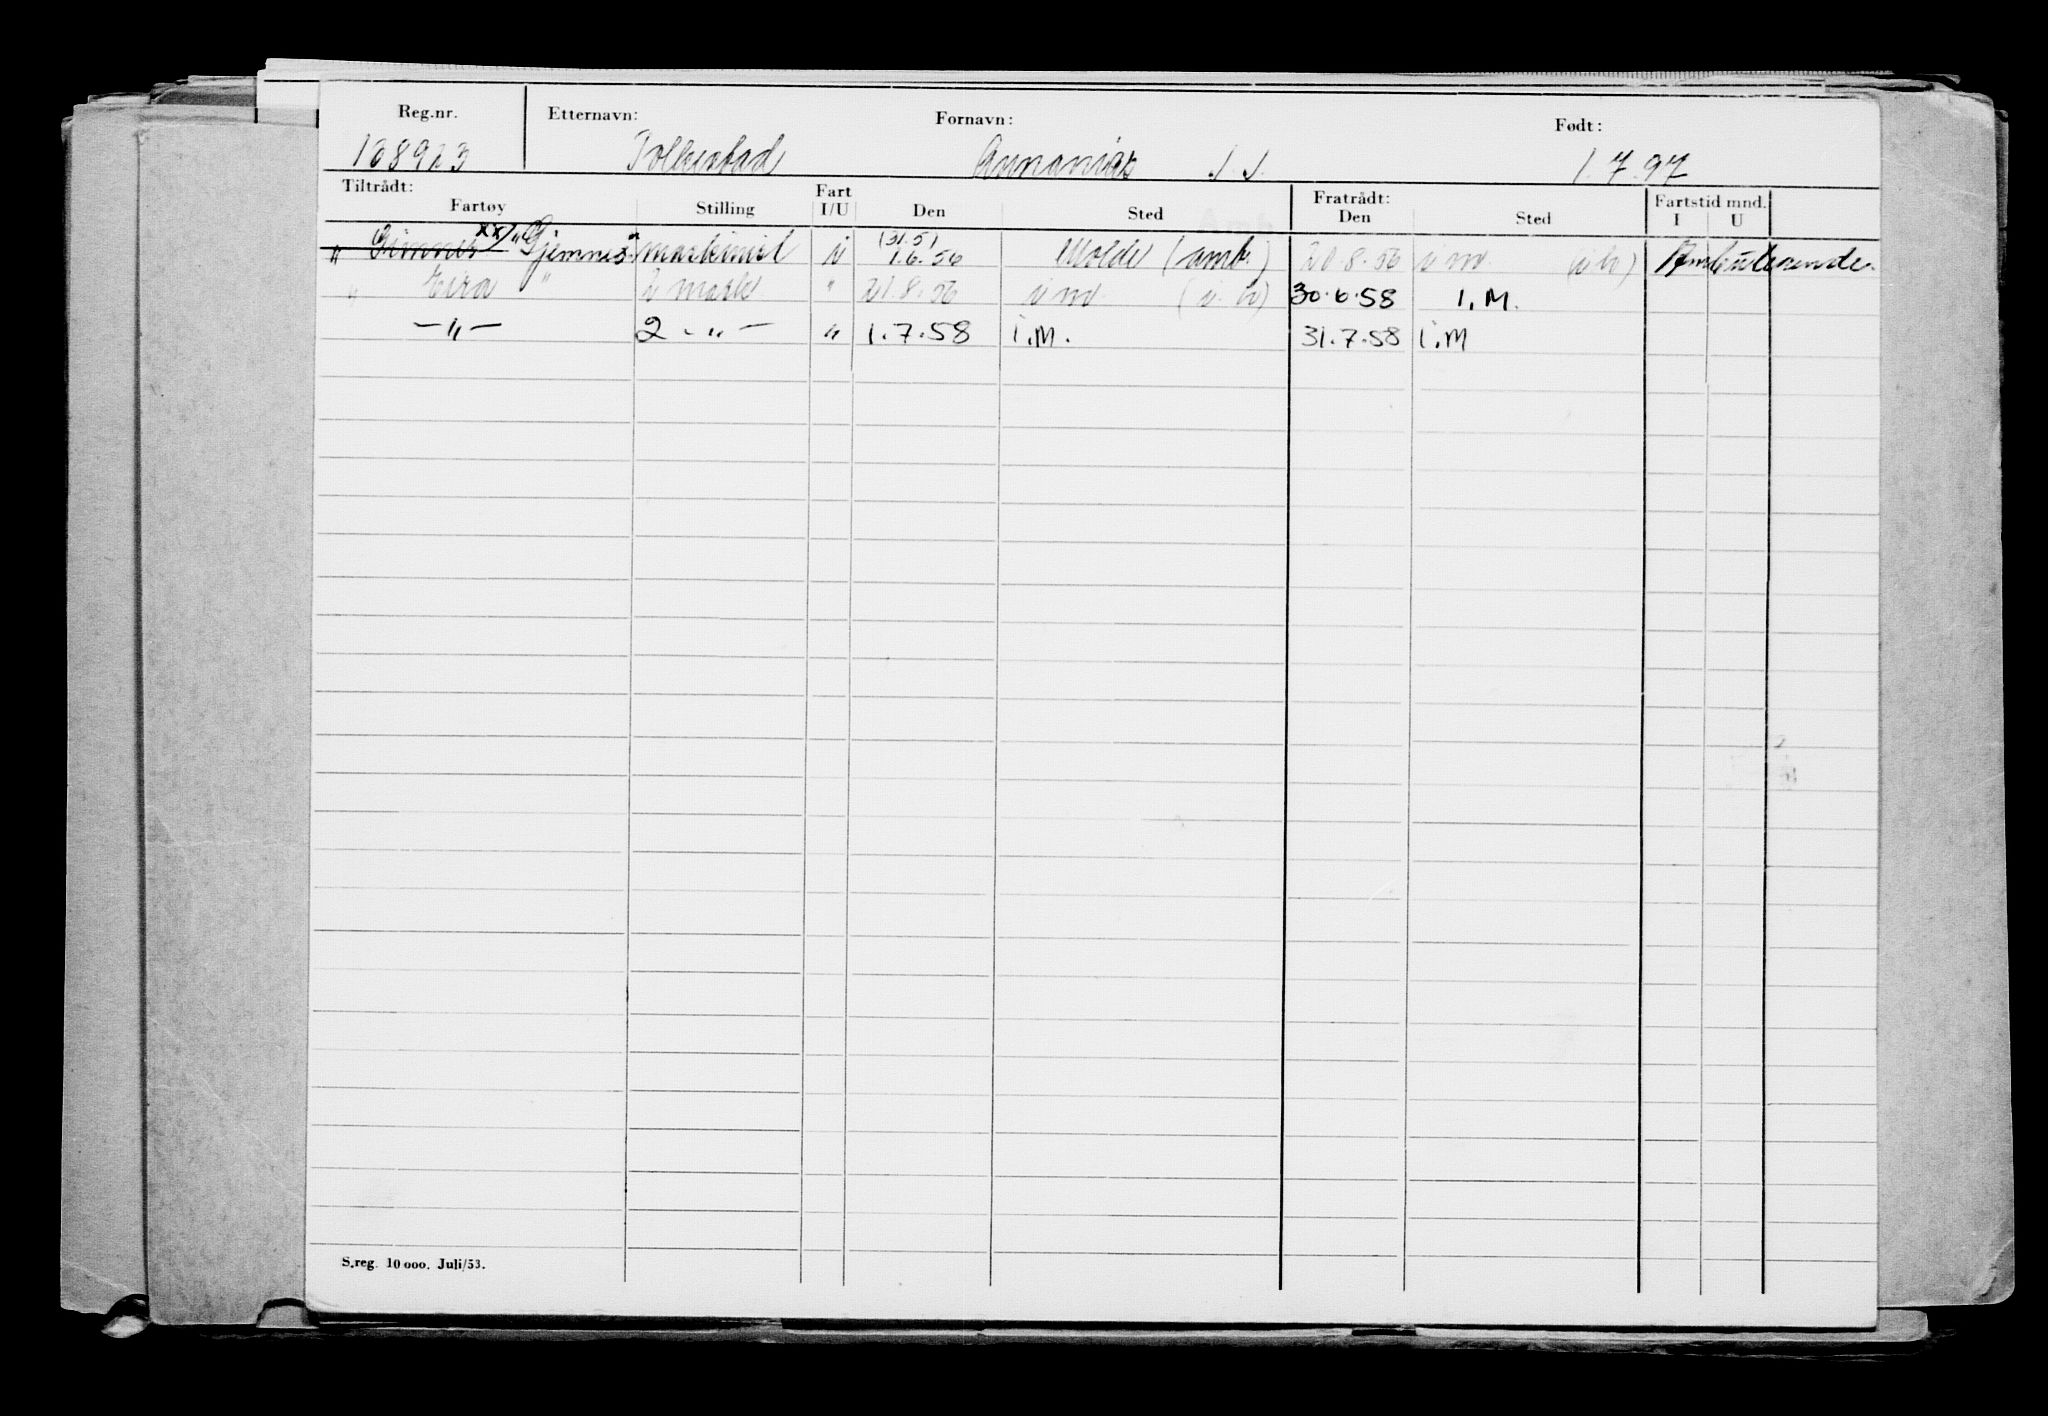 Reg.nr. Etternavn: Fornavn: Født:
108923 Folkestad Annanias J. J. 1.7.97
Tiltrådt: Fratrådt:
Fartøy Stilling Fart I/U Den Sted Den Sted Fartstid mnd. I U
(31.5)
" Gimnes xx/ "Gjemnes" maskinist i 1.6.56 Molde (amb.) 21.8.56 i m. (i h) Ambulerende.
" Eira " 2 mask. " 21.8.56 i m. (i. h) 30.6.58 I.M.
—"— 2 -"- " 1.7.58 i.M. 31.7.58 i.M
S.reg. 10 000. Juli/53.